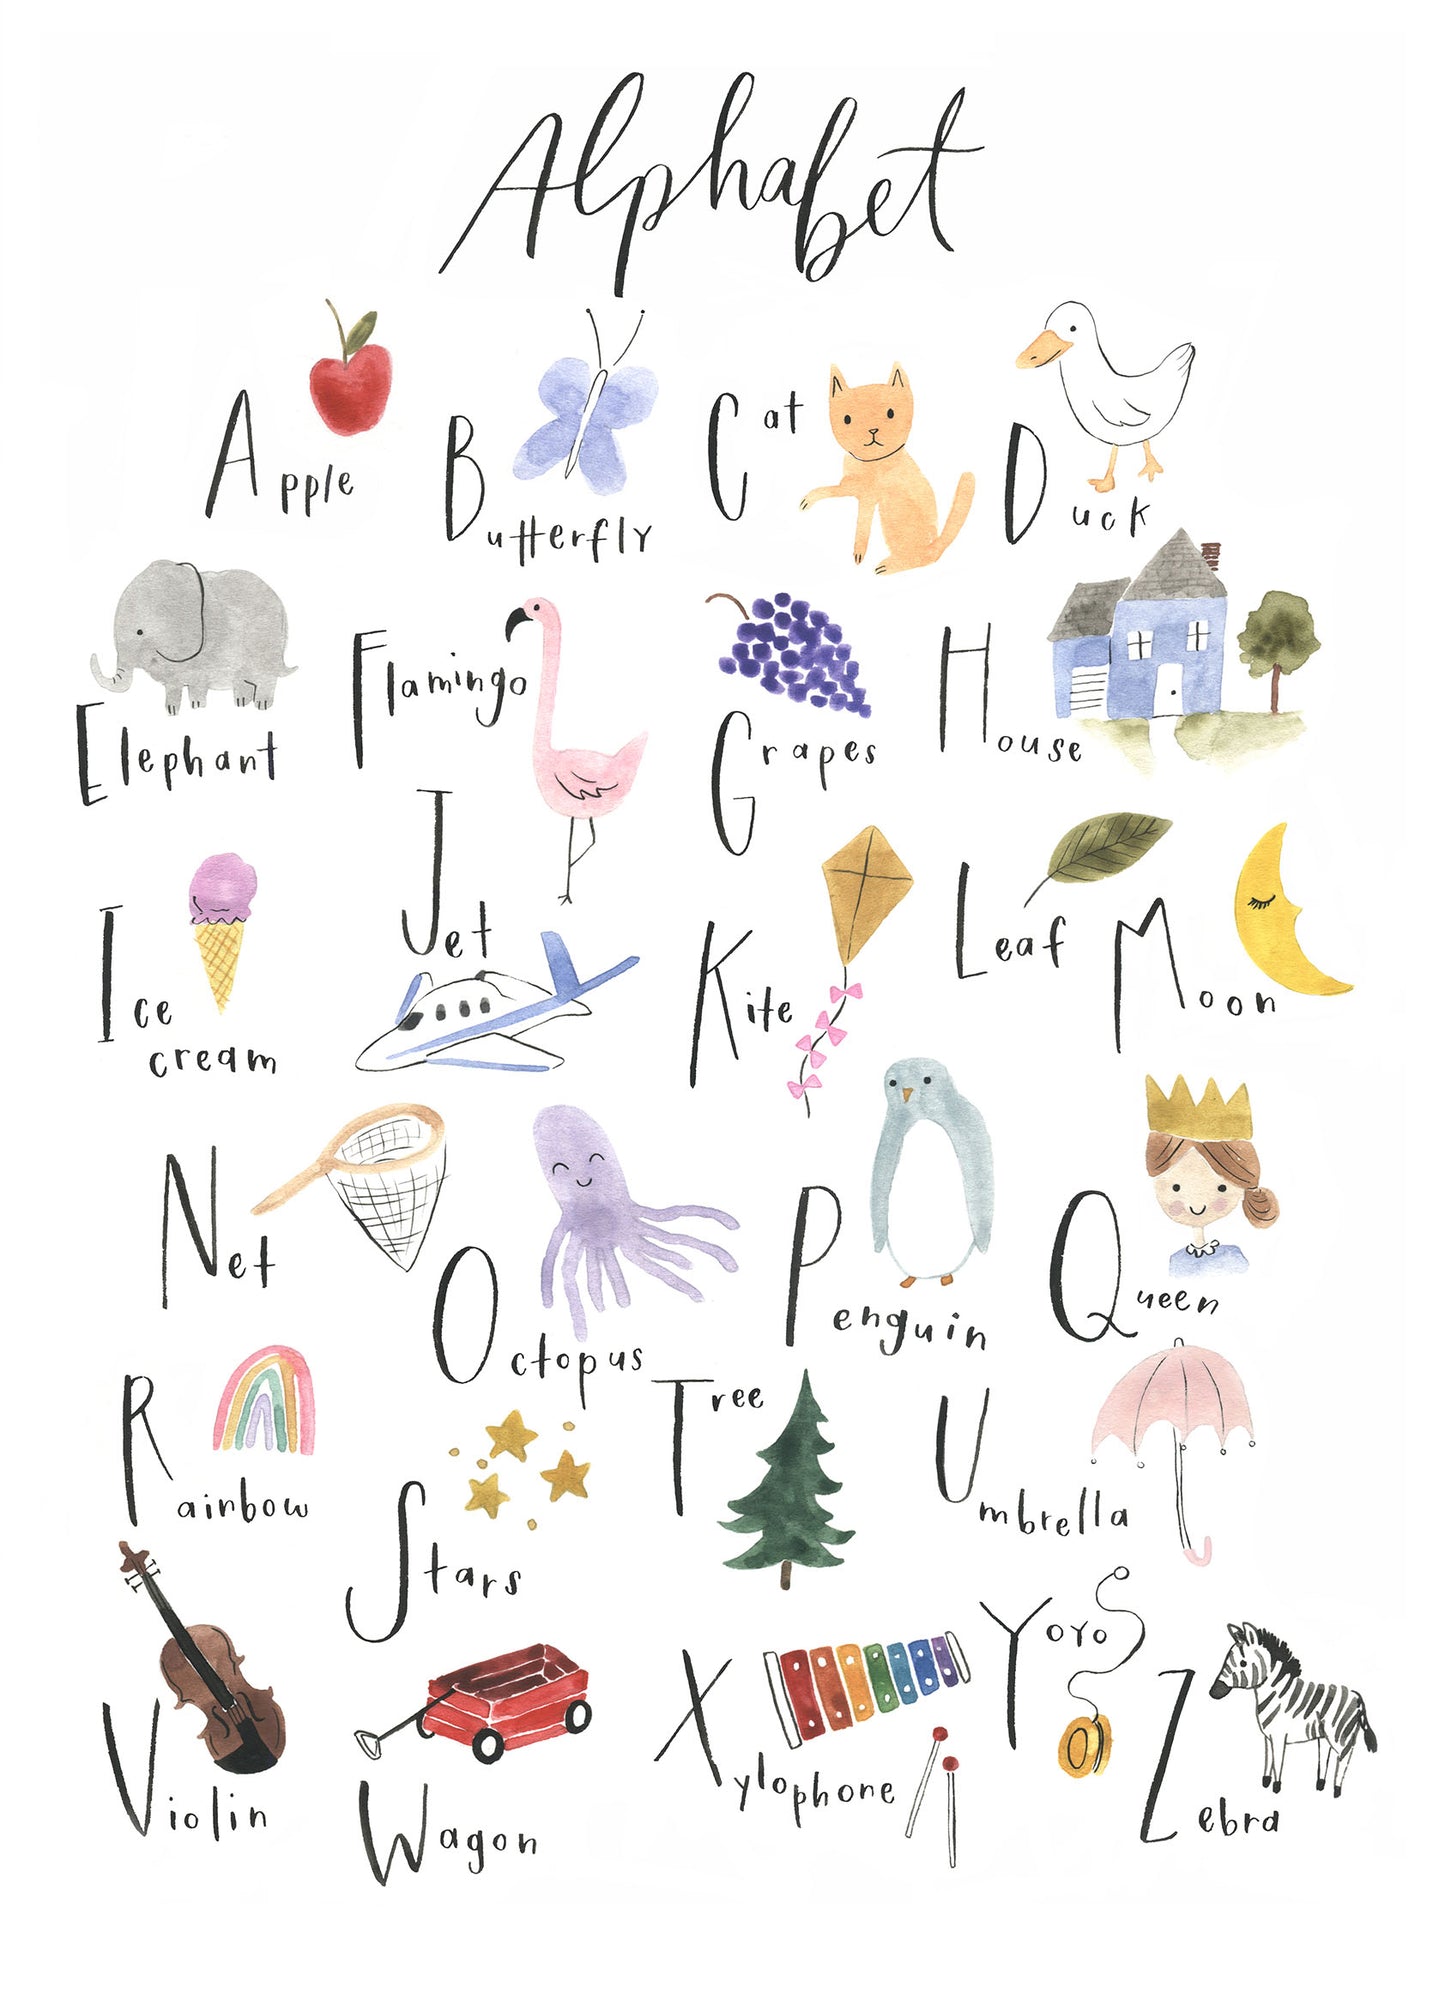 Alphabet
Apple
Butterfly
Cat
Duck
Elephant
Flamingo
Grapes
House
Ice
cream
Jet
Kite
Leaf
Moon
Net
Octopus
Penguin
Queen
Rainbow
Stars
Tree
Umbrella
Violin
Wagon
Xylophone
Yoyo
Zebra